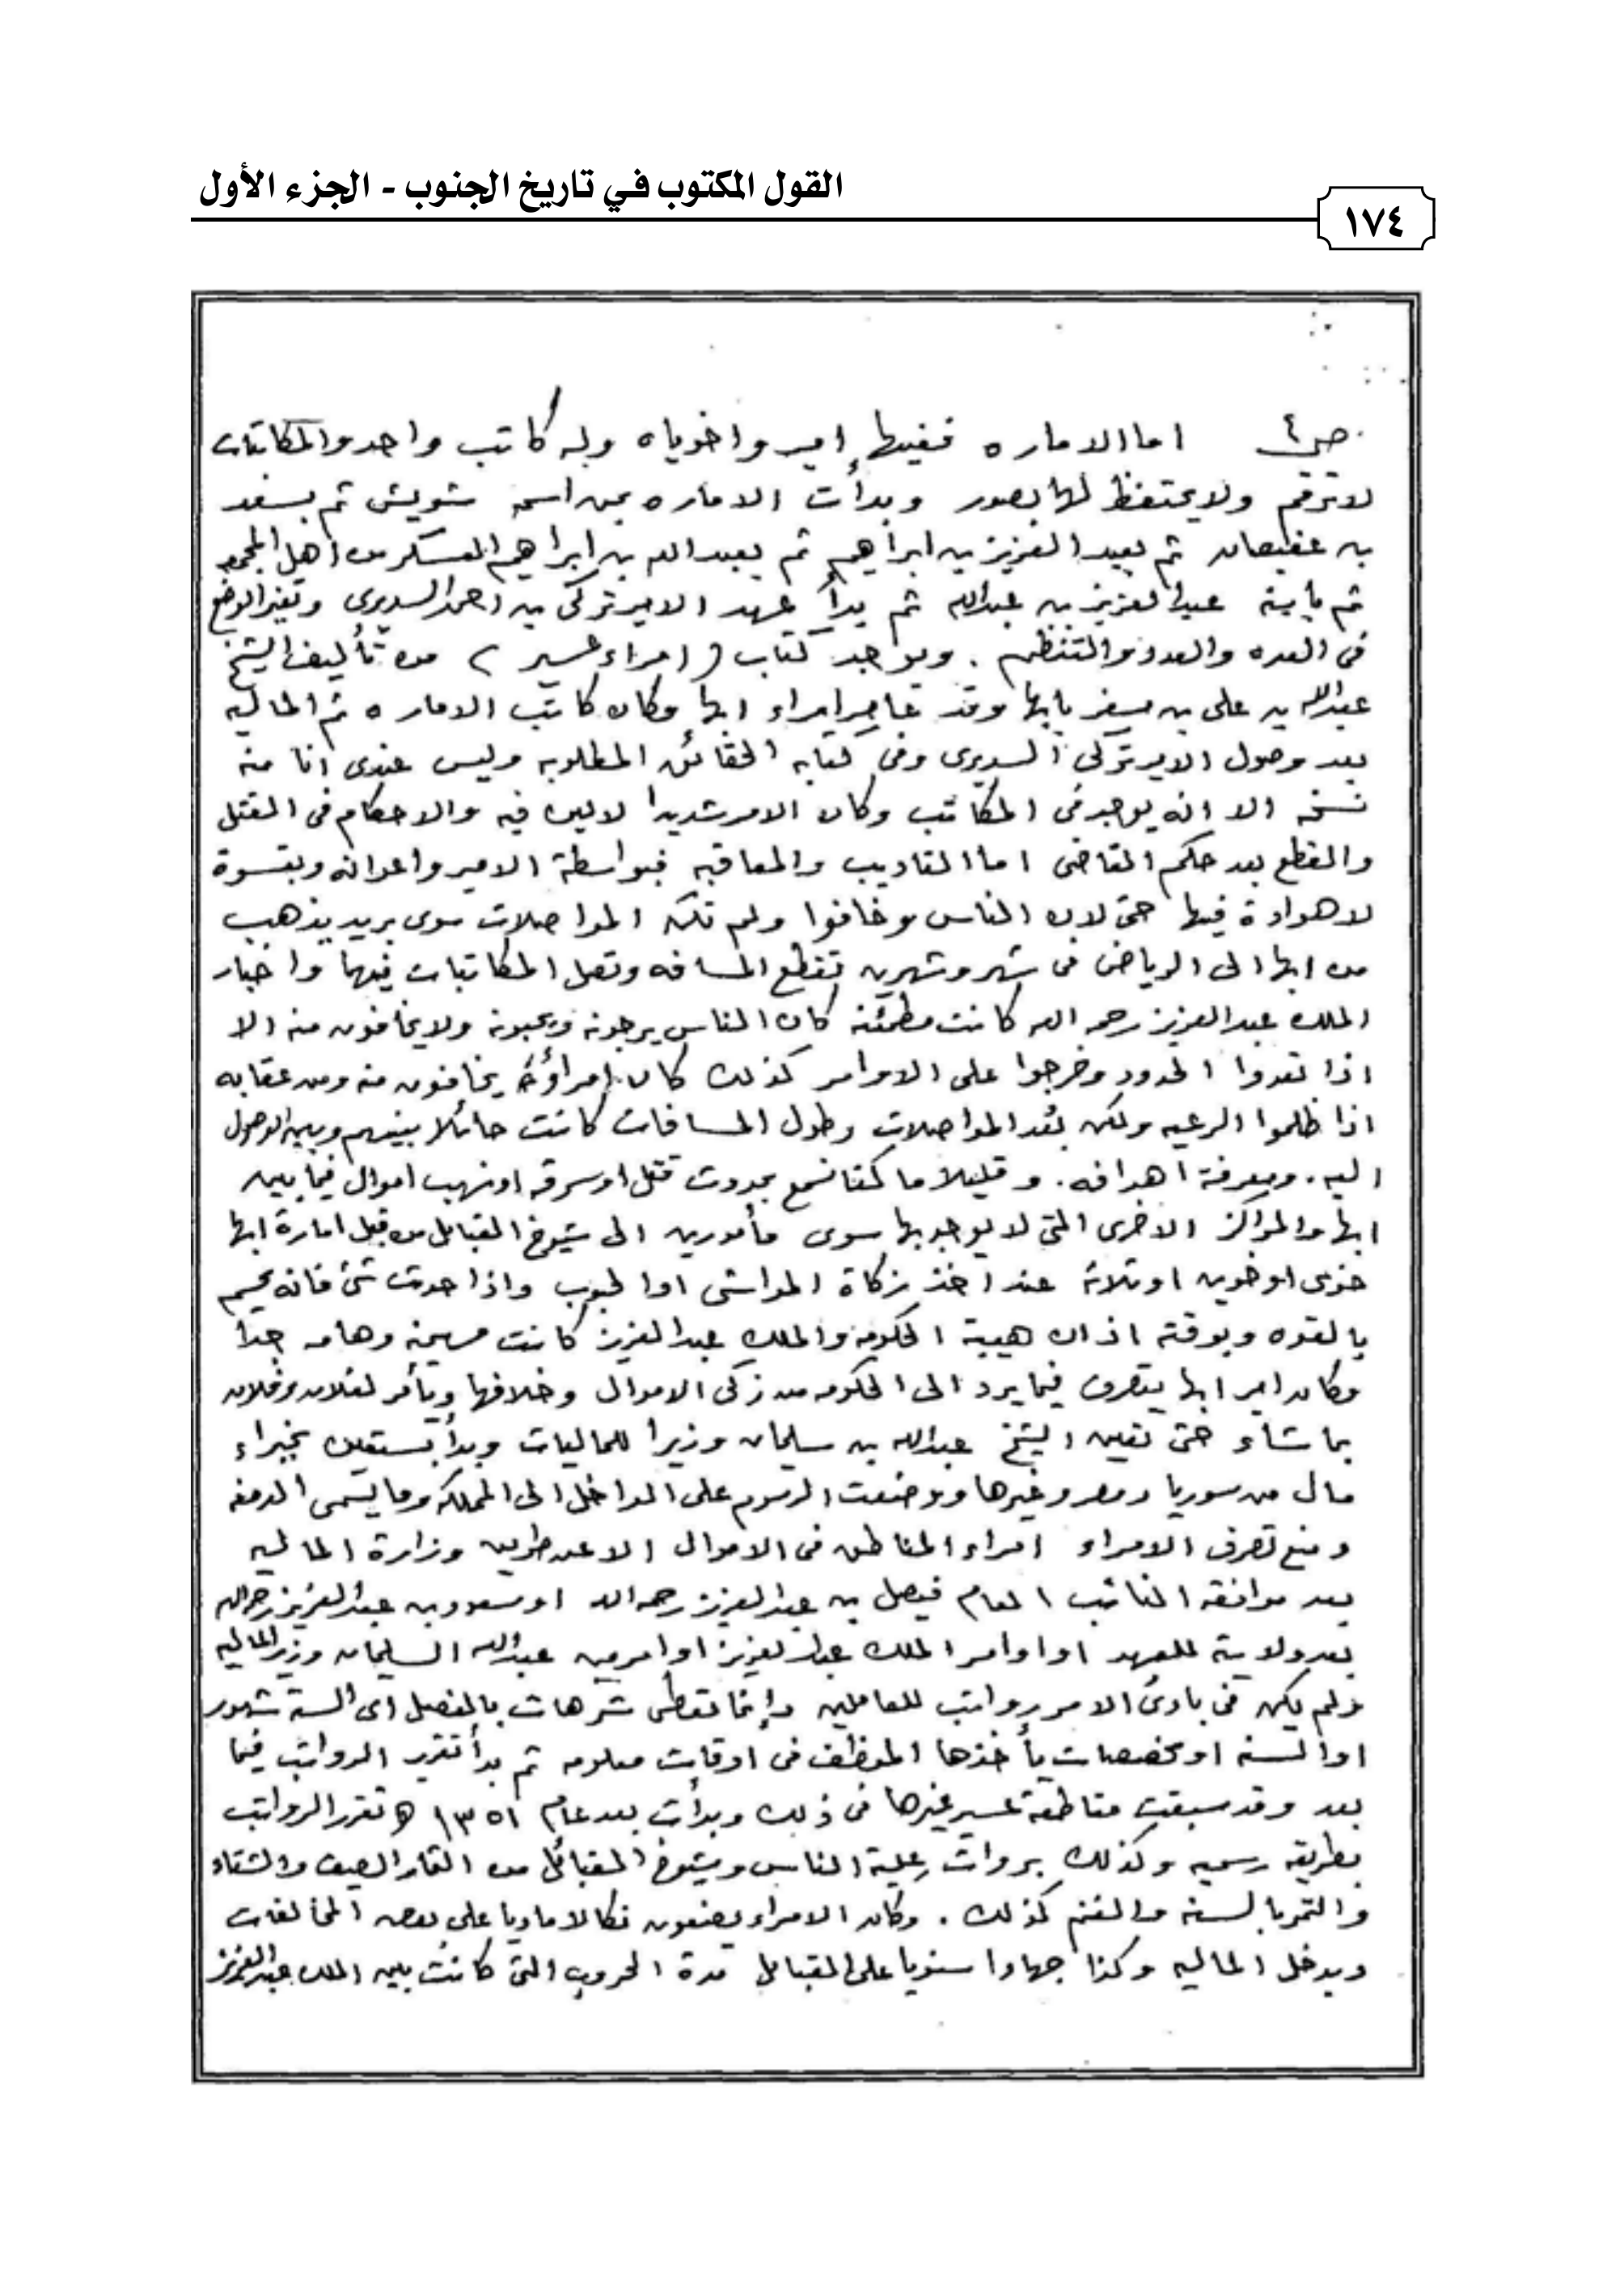 القول المكتوب في تاريخ الجنوب - الجزء الأول
١٧٤
ص٤ اما الاماره ففيها امير واخوياه وله كاتب واحد والمكاتبات
لا ترقم ولا يحتفظ لها بصور وبدأت الاماره بمن اسمه شويش ثم بسعد
بن عفيصان ثم بعبد العزيز بن ابراهيم ثم بعبد الله بن ابراهيم العسكر من اهل المجمعه
ثم بابنه عبد العزيز بن عبدالله ثم بدأ عهد الامير تركي بن احمد السديرى وتغير الوضع
فى العده والعدد والتنظيم . ويوجد كتاب ( امراء عسير ) من تأليف الشيخ
عبدالله بن على بن مسفر بابها وقد عاصر امراء ابها وكان كاتب الاماره ثم الماليه
بعد وصول الامير تركى السديرى وفى كتابه الحقائق المطلوبه وليس عندى انا منه
نسخه الا انه يوجد فى المكاتب وكان الامر شديدا لا لين فيه والاحكام فى القتل
والقطع بعد حكم القاضى اما التاديب والمعاقبه فبواسطة الامير واعوانه وبقسوة
لا هوادة فيها حتى لان الناس وخافوا ولم تكن المواصلات سوى بريد يذهب
من ابها الى الرياض فى شهر وشهرين تقطع المسافه وتصل المكاتبات فيها واخبار
الملك عبدالعزيز رحمه الله كانت مطمئنه كان الناس يرجونه ويحبونه ولا يخافون منه الا
اذا تعدوا الحدود وخرجوا على الاوامر كذلك كان امراؤه يخافون منه ومن عقابه
اذا ظلموا الرعيه ولكن بعد المواصلات وطول المسافات كانت حائلا بينهم وبين الوصول
اليه . ومعرفة اهدافه . وقليلا ما كنا نسمع بحدوث قتل او سرقه او نهب اموال فيما بين
ابها والمراكز الاخرى التى لا يوجد بها سوى مأمورين الى شيوخ القبايل من قبل امارة ابها
خوى او خوين او ثلاثه عند اخذ زكاة المواشى او الحبوب واذا حدث شئ فانه يحسم
بالقوه وبوقته اذ ان هيبة الحكومه والملك عبد العزيز كانت مهيمنه وهامه جدا
وكان امير ابها يتصرف فيما يرد الى الحكومه من زكى الاموال وخلافها ويأمر لفلان وفلان
بما شاء حتى تعين الشيخ عبدالله بن سليمان وزيرا للماليات وبدأ يستعين بخبراء
مال من سوريا ومصر وغيرها ووضعت الرسوم على المداخل الى المملكه وما يسمى الدمغه
ومنع تصرف الامراء امراء المناطق فى الاموال الا عن طريق وزارة الماليه
بعد موافقه النائب العام فيصل بن عبدالعزيز رحمه الله او سعود بن عبدالعزيز رحمه الله
بعد ولايته للعهد او اوامر الملك عبدالعزيز او امر من عبدالله السليمان وزير الماليه
ولم يكن فى بادئ الامر رواتب للعاملين وإنما تعطى شرهات بالفصل اى الستة شهور
او السنه او مخصصات يأخذها الموظف فى اوقات معلومه ثم بدأ تقرير الرواتب فيما
بعد وقد سبقت مقاطعة عسير غيرها فى ذلك وبدأت بعد عام ١٣٥١ هـ تقرر الرواتب
بطريقه رسميه وكذلك بروات علية الناس وشيوخ القبائل من الصيف والشتاء
والتمر بالسنه والغنم كذلك . وكان الامراء يضعون نكالا ماديا على بعض المخالفات
ويدخل الماليه وكذا جهادا سنويا على القبايل مدة الحروب التى كانت بين الملك عبدالعزيز